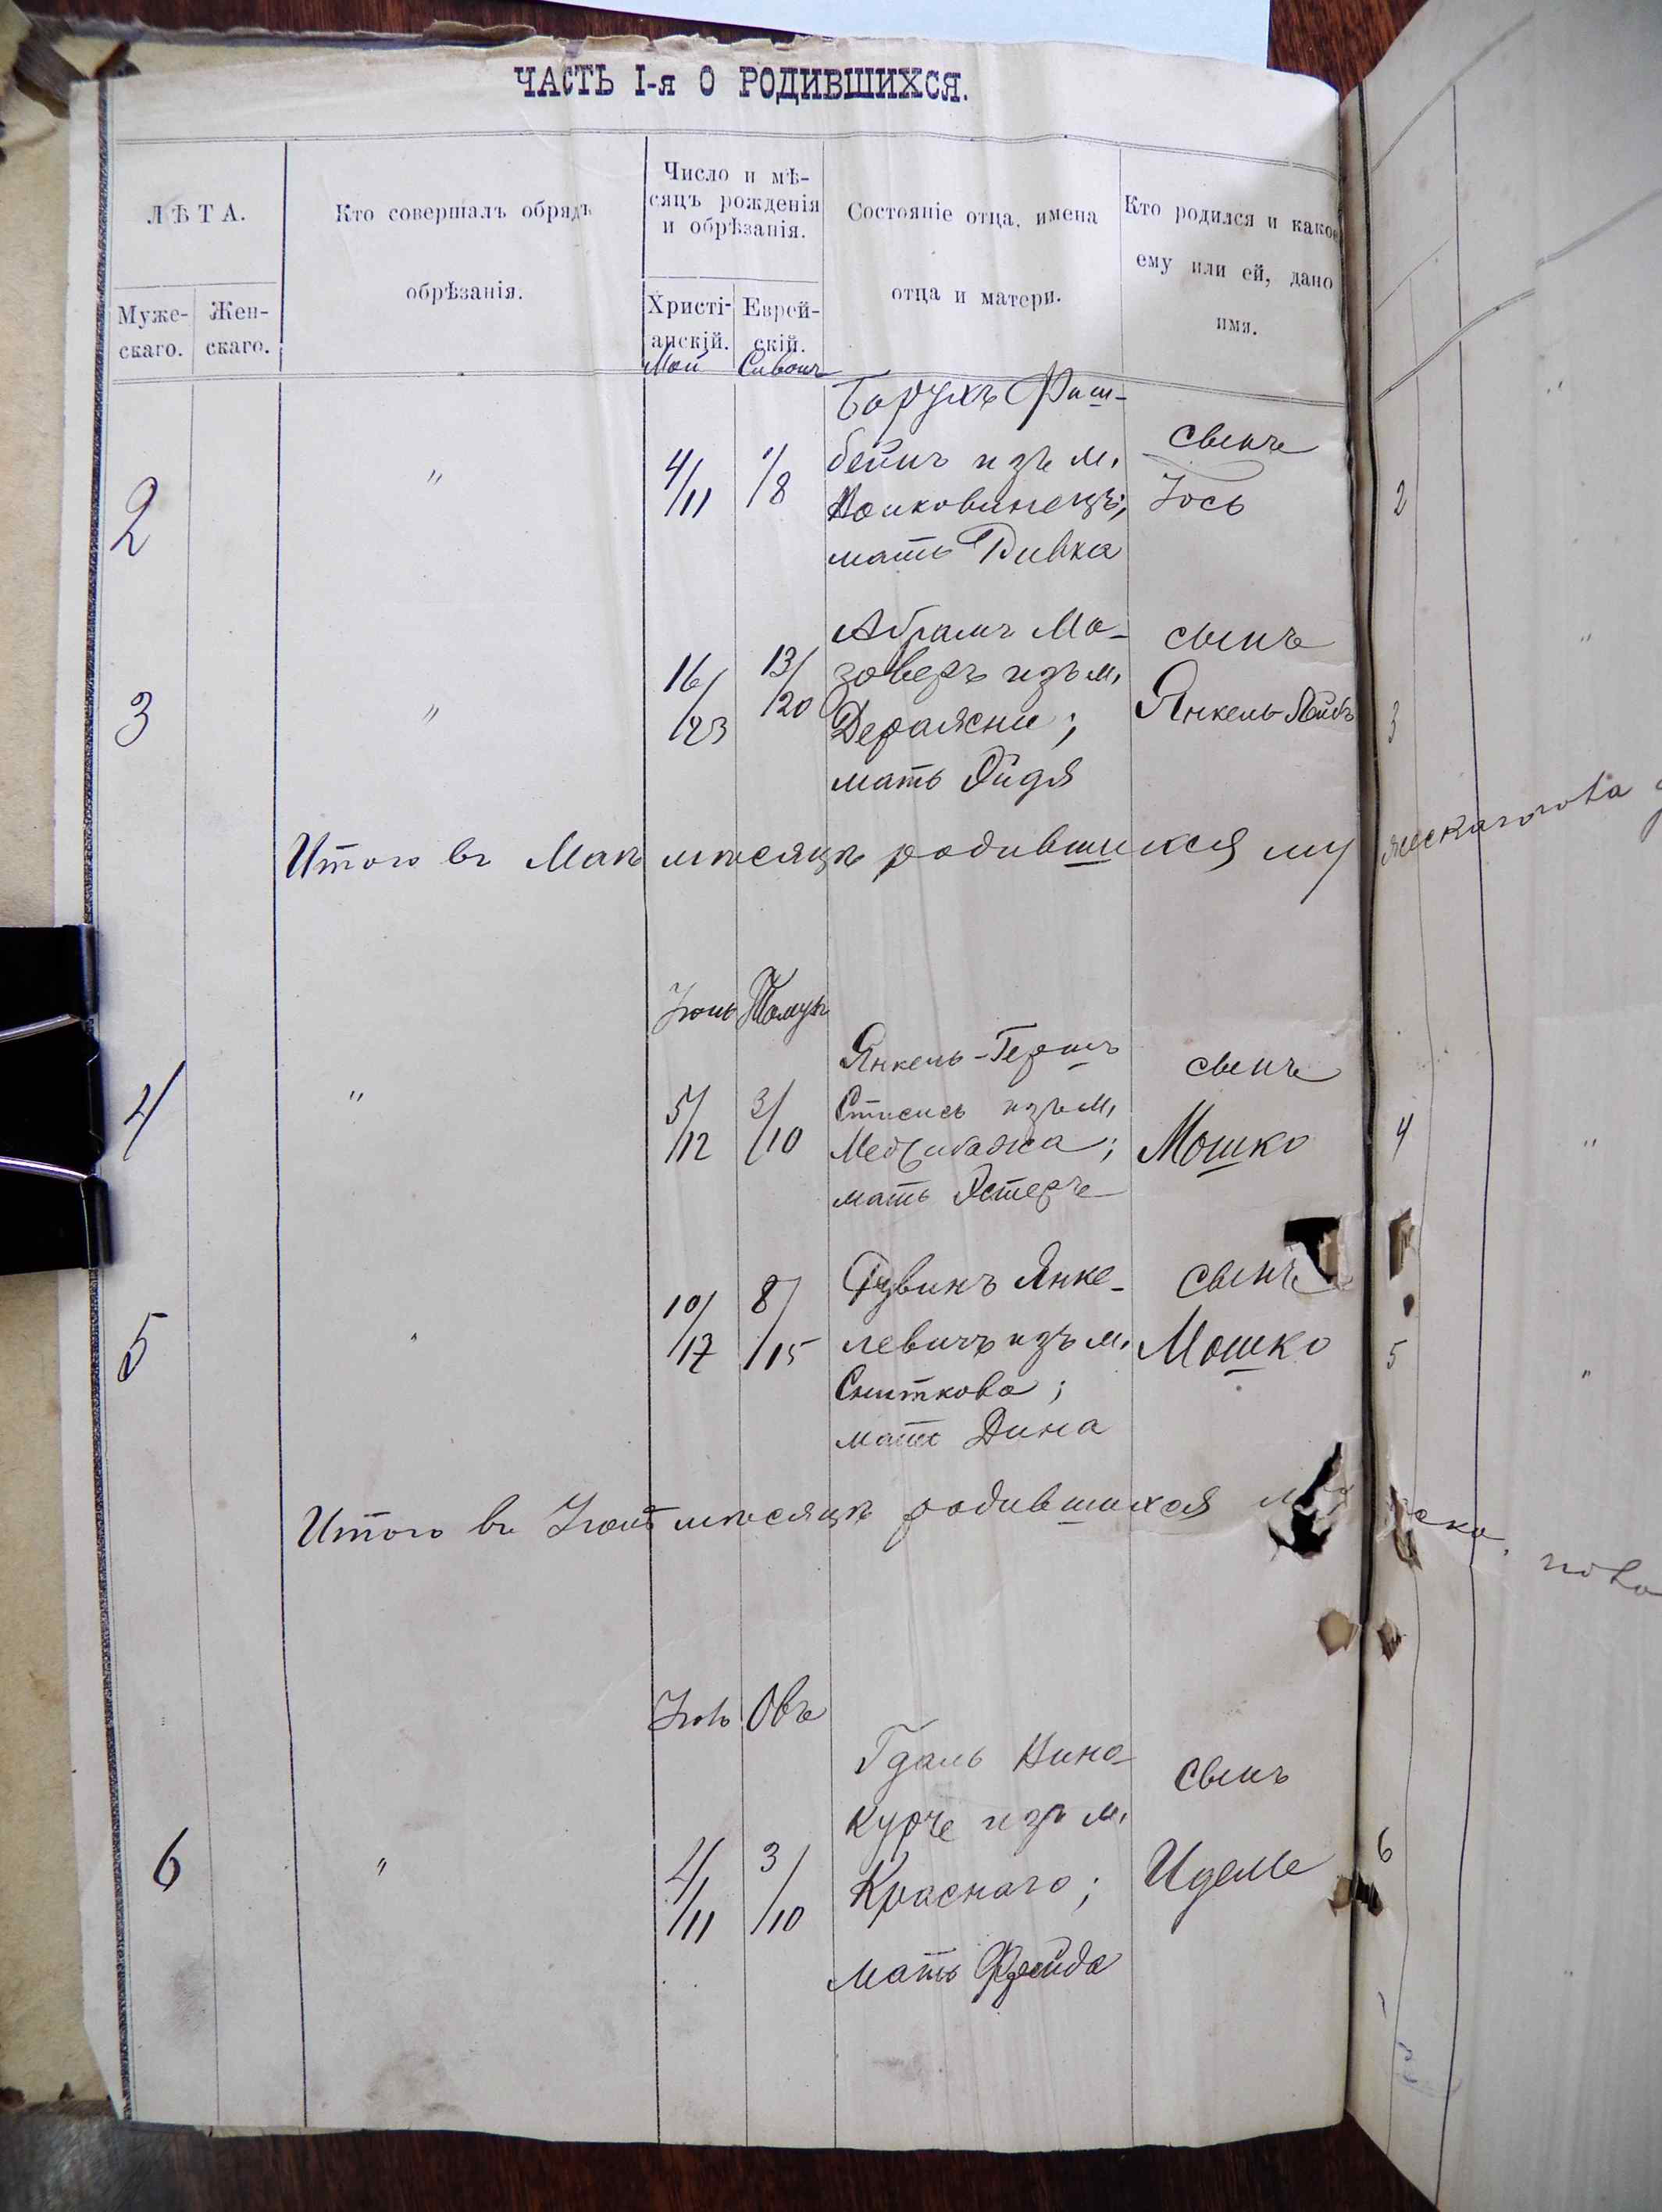 ЧАСТЬ I-я О РОДИВШИХСЯ.
ЛѢТА.
Муже-
скаго.
Жен-
скаго.
Кто совершалъ обрядъ
обрѣзанія.
Число и мѣ-
сяцъ рожденія
и обрѣзанія.
Христі-
анскій.
Еврей-
скій.
Состояніе отца, имена
отца и матери.
Кто родился и какое
ему или ей, дано
имя.
Май Сивонъ
2 " 4/11 1/8
Борухъ Фиш-
бейнъ изъ м.
Волковинецъ;
мать Ривка
сынъ
Іось
2
3 " 16/23 13/20
Абрамъ Ма-
зоверъ изъ м.
Деражни;
мать Эйдя
сынъ
Янкель-Лейбъ
3
Итого въ Маѣ мѣсяцѣ родившихся мужескаго пола
Іюнь Тамузъ
4 " 5/12 3/10
Янкель-Гершъ
изъ м.
Меджибожа;
мать Эстеръ
сынъ
Мошко
4
5 " 10/17 8/15
Рувинъ Янке-
левичъ изъ м.
Сниткова;
мать Дина
сынъ
Мошко
5
Итого въ Іюнѣ мѣсяцѣ родившихся
Іюль Овъ
6 " 4/11 3/10
Гдаль Вино-
куръ изъ м.
Краснаго;
мать Фрейда
сынъ
Идель
6